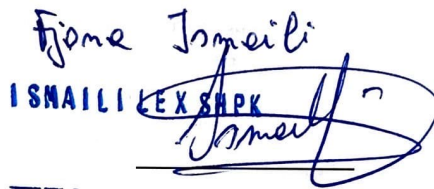 Fjona Ismaili
ISMAILI LEX SHPK
Ismaili